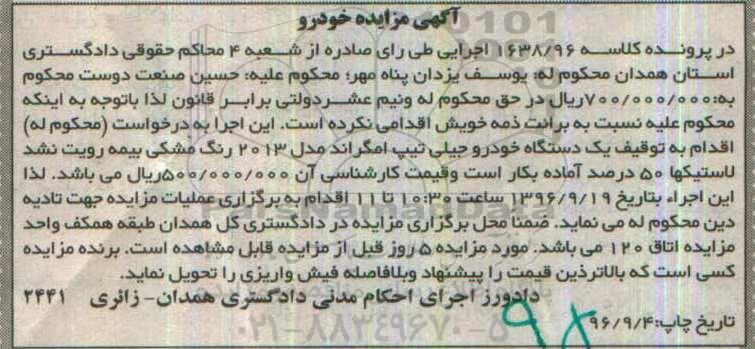 آگهی مزایده خودرو
در پرونده کلاسه ۱۶۳۸/۹۶ اجرایی طی رای صادره از شعبه ۴ محاکم حقوقی دادگستری
استان همدان محکوم له: یوسف یزدان پناه مهر؛ محکوم علیه: حسین صنعت دوست محکوم
به: ۷۰۰/۰۰۰/۰۰۰ریال در حق محکوم له ونیم عشردولتی برابر قانون لذا باتوجه به اینکه
محکوم علیه نسبت به برائت ذمه خویش اقدامی نکرده است. این اجرا به درخواست (محکوم له)
اقدام به توقیف یک دستگاه خودرو جیلی تیپ امگراند مدل ۲۰۱۳ رنگ مشکی بیمه رویت نشد
لاستیکها ۵۰ درصد آماده بکار است وقیمت کارشناسی آن ۵۰۰/۰۰۰/۰۰۰ریال می باشد. لذا
این اجراء بتاریخ ۱۳۹۶/۹/۱۹ ساعت ۱۰:۳۰ تا ۱۱ اقدام به برگزاری عملیات مزایده جهت تادیه
دین محکوم له می نماید. ضمنا محل برگزاری مزایده در دادگستری کل همدان طبقه همکف واحد
مزایده اتاق ۱۲۰ می باشد. مورد مزایده ۵ روز قبل از مزایده قابل مشاهده است. برنده مزایده
کسی است که بالاترذین قیمت را پیشنهاد وبلافاصله فیش واریزی را تحویل نماید.
دادورز اجرای احکام مدنی دادگستری همدان- زائری ۲۴۴۱
تاریخ چاپ: ۹۶/۹/۴
۰۲۱-۸۸۳۴۹۶۷۰-۵
ParsNamadData